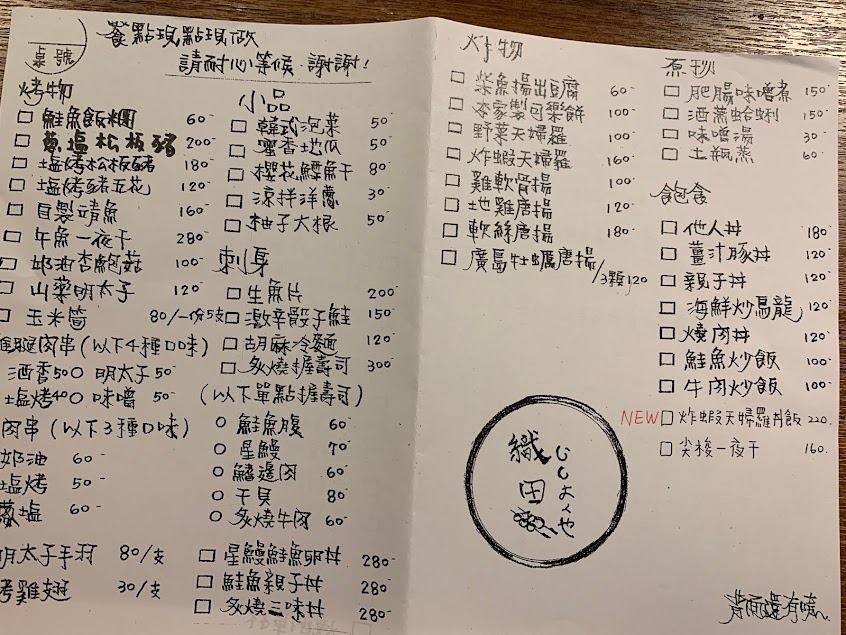 桌號
餐點現點現做
請耐心等候.謝謝!
烤物
鮭魚飯糰 60-
蔥塩松板豬 200-
塩烤松板豬 180-
塩烤豬五花 120-
自製鯖魚 160-
午魚一夜干 280-
奶油杏鮑菇 100-
山藥明太子 120-
玉米筍 80/一份5支
腿肉串(以下4種口味)
酒香50 明太子50-
塩烤40 味噌50-
肉串(以下3種口味)
奶油 60-
塩烤 50-
蔥塩 60-
明太子手羽 80/支
烤雞翅 30/支
小品
韓式泡菜 50-
蜜香地瓜 50-
櫻花鱈魚干 80-
涼拌洋蔥 30-
柚子大根 50-
刺身
生魚片 200-
激辛骰子鮭 150-
胡麻冷麵 120-
炙燒握壽司 300-
(以下單點握壽司)
鮭魚腹 60-
星鰻 70-
鰭邊肉 60-
干貝 80-
炙燒牛肉 60-
星鰻鮭魚卵丼 280-
鮭魚親子丼 280-
炙燒三味丼 280-
炸物
柴魚揚出豆腐 60-
本家製可樂餅 100-
野菜天婦羅 100-
炸蝦天婦羅 160-
雞軟骨揚 100-
地雞唐揚 120-
軟絲唐揚 180-
廣島牡蠣唐揚/3顆120
煮物
肥腸味噌煮 150-
酒蒸蛤蜊 150-
味噌湯 30-
土瓶蒸 60-
飽食
他人丼 180-
薑汁豚丼 120-
親子丼 120-
海鮮炒烏龍 120-
燒肉丼 120-
鮭魚炒飯 100-
牛肉炒飯 100-
NEW 炸蝦天婦羅丼飯 220.
尖梭一夜干 160.
織田
背面還有唷~